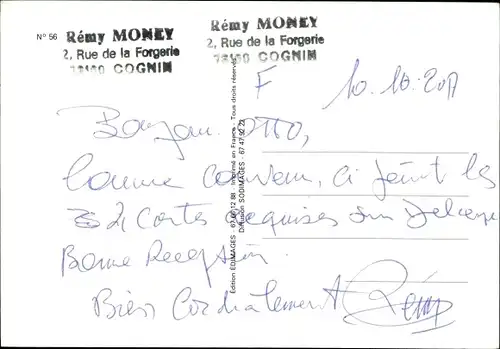 N° 56
Rémy MONEY
2, Rue de la Forgerie
73160 COGNIN
Rémy MONEY
2, Rue de la Forgerie
73160 COGNIN
F 10.10.2011
Bonjour OTTO,
Comme convenu, ci joint les
2 Cartes requises
Bonne Reception
Bien Cordialement
Rémy
Edition EDIMAGES - Imprimé en France - Tous droits réservés
Diffusion SODIMAGES - 67 47 92 22